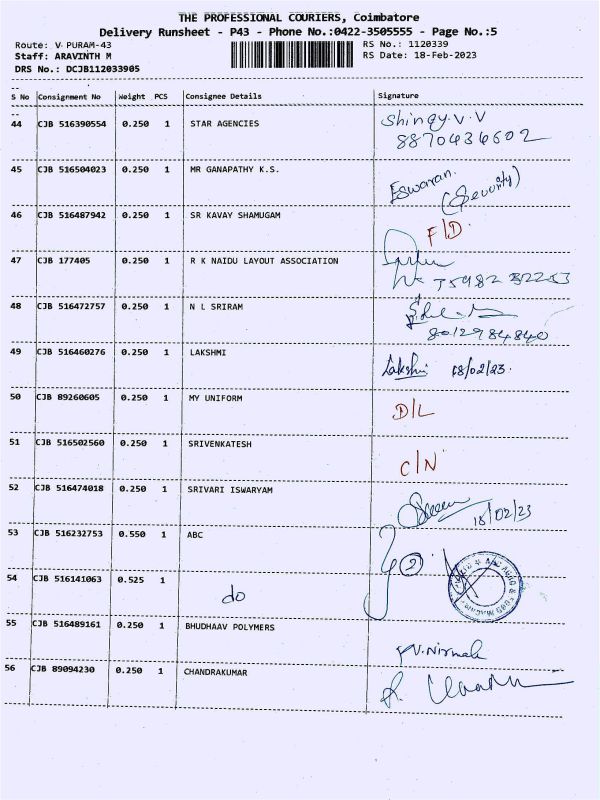 THE PROFESSIONAL COURIERS, Coimbatore
Delivery Runsheet - P43 - Phone No.:0422-3505555 - Page No.:5
Route: V PURAM-43 RS No.: 1120339
Staff: ARAVINTH M RS Date: 18-Feb-2023
DRS No.: DCJB112033905
S No Consignment No Weight PCS Consignee Details Signature
44 CJB 516390554 0.250 1 STAR AGENCIES
8870434602
45 CJB 516504023 0.250 1 MR GANAPATHY K.S. Eswaran.
(Security)
46 CJB 516487942 0.250 1 SR KAVAY SHAMUGAM F/D.
47 CJB 177405 0.250 1 R K NAIDU LAYOUT ASSOCIATION
48 CJB 516472757 0.250 1 N L SRIRAM
8012984840
49 CJB 516460276 0.250 1 LAKSHMI Lakshmi 18/02/23.
50 CJB 89260605 0.250 1 MY UNIFORM D/L
51 CJB 516502560 0.250 1 SRIVENKATESH C/N
52 CJB 516474018 0.250 1 SRIVARI ISWARYAM 18/02/23
53 CJB 516232753 0.550 1 ABC 2
54 CJB 516141063 0.525 1 do
55 CJB 516489161 0.250 1 BHUDHAAV POLYMERS V.Nirmala
56 CJB 89094230 0.250 1 CHANDRAKUMAR